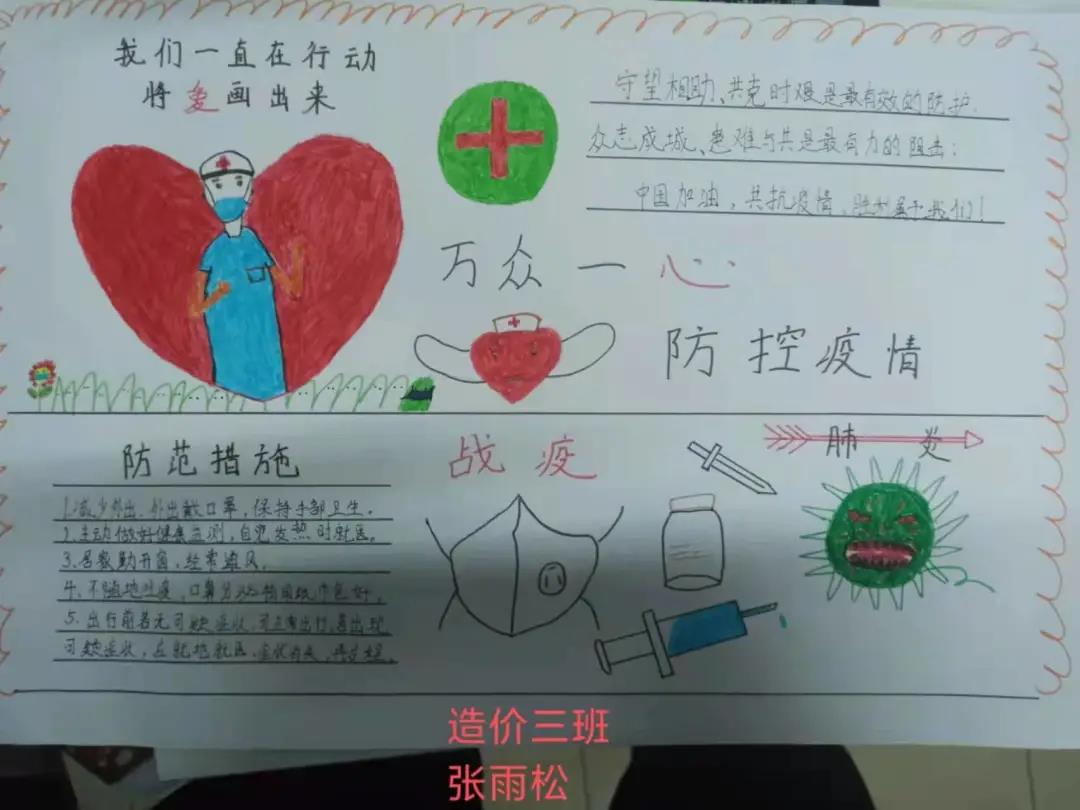 我们一直在行动
将爱画出来
守望相助、共克时艰是最有效的防护.
众志成城、患难与共是最有力的阻击;
中国加油,共抗疫情、胜利属于我们!
万众一心
防控疫情
防范措施
1.减少外出、外出戴口罩,保持手部卫生。
2.主动做好健康监测,自觉发热时就医。
3.居家勤开窗,经常通风。
4.不随地吐痰,口鼻分泌物用纸巾包好。
5.出行前若无可疑症状,可正常出行,若出现
可疑症状,
战疫
肺炎
造价三班
张雨松